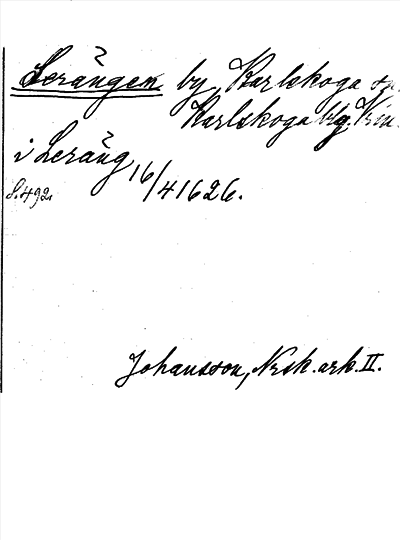 Lerängen by, Karlskoga sn
Karlskoga bg, Vrm.
i Leräng 16/4 1626.
S. 492.
Johansson, Nrsk. ark. II.